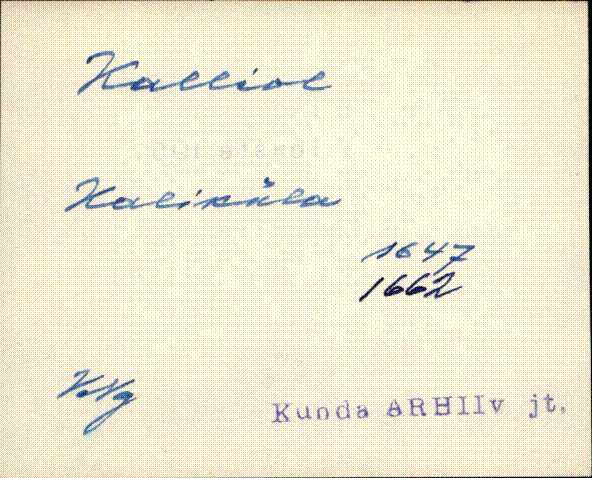 Kalliol
Kaliküla
1647
1662
VNg
Kunda ARHIIv jt,